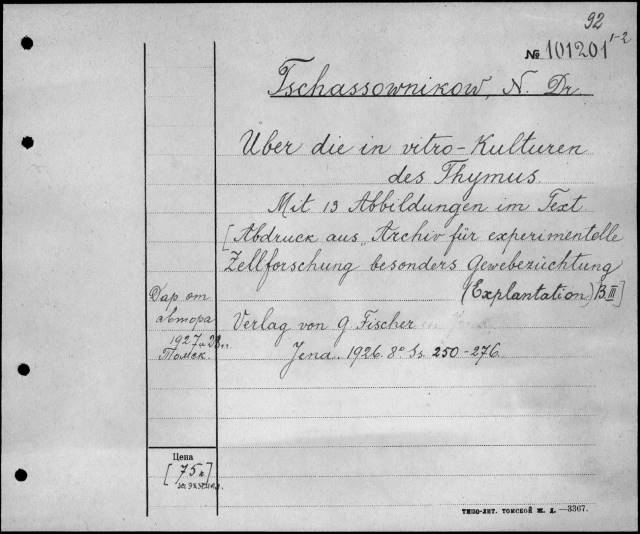 92
№ 101201 1-2
Tschassownikow, N. Dr.
Über die in vitro-Kulturen
des Thymus.
Mit 13 Abbildungen im Text
[Abdruck aus „Archiv für experimentelle
Zellforschung besonders Gewebezüchtung
(Explantation) B. III]
Дар от
автора
1927
Томск.
Verlag von G. Fischer
Jena. 1926. 8° Ss. 250-276.
Цена
[75 к]
ТИПО-ЛИТ. ТОМСКОЙ Ж. Д. —3367.